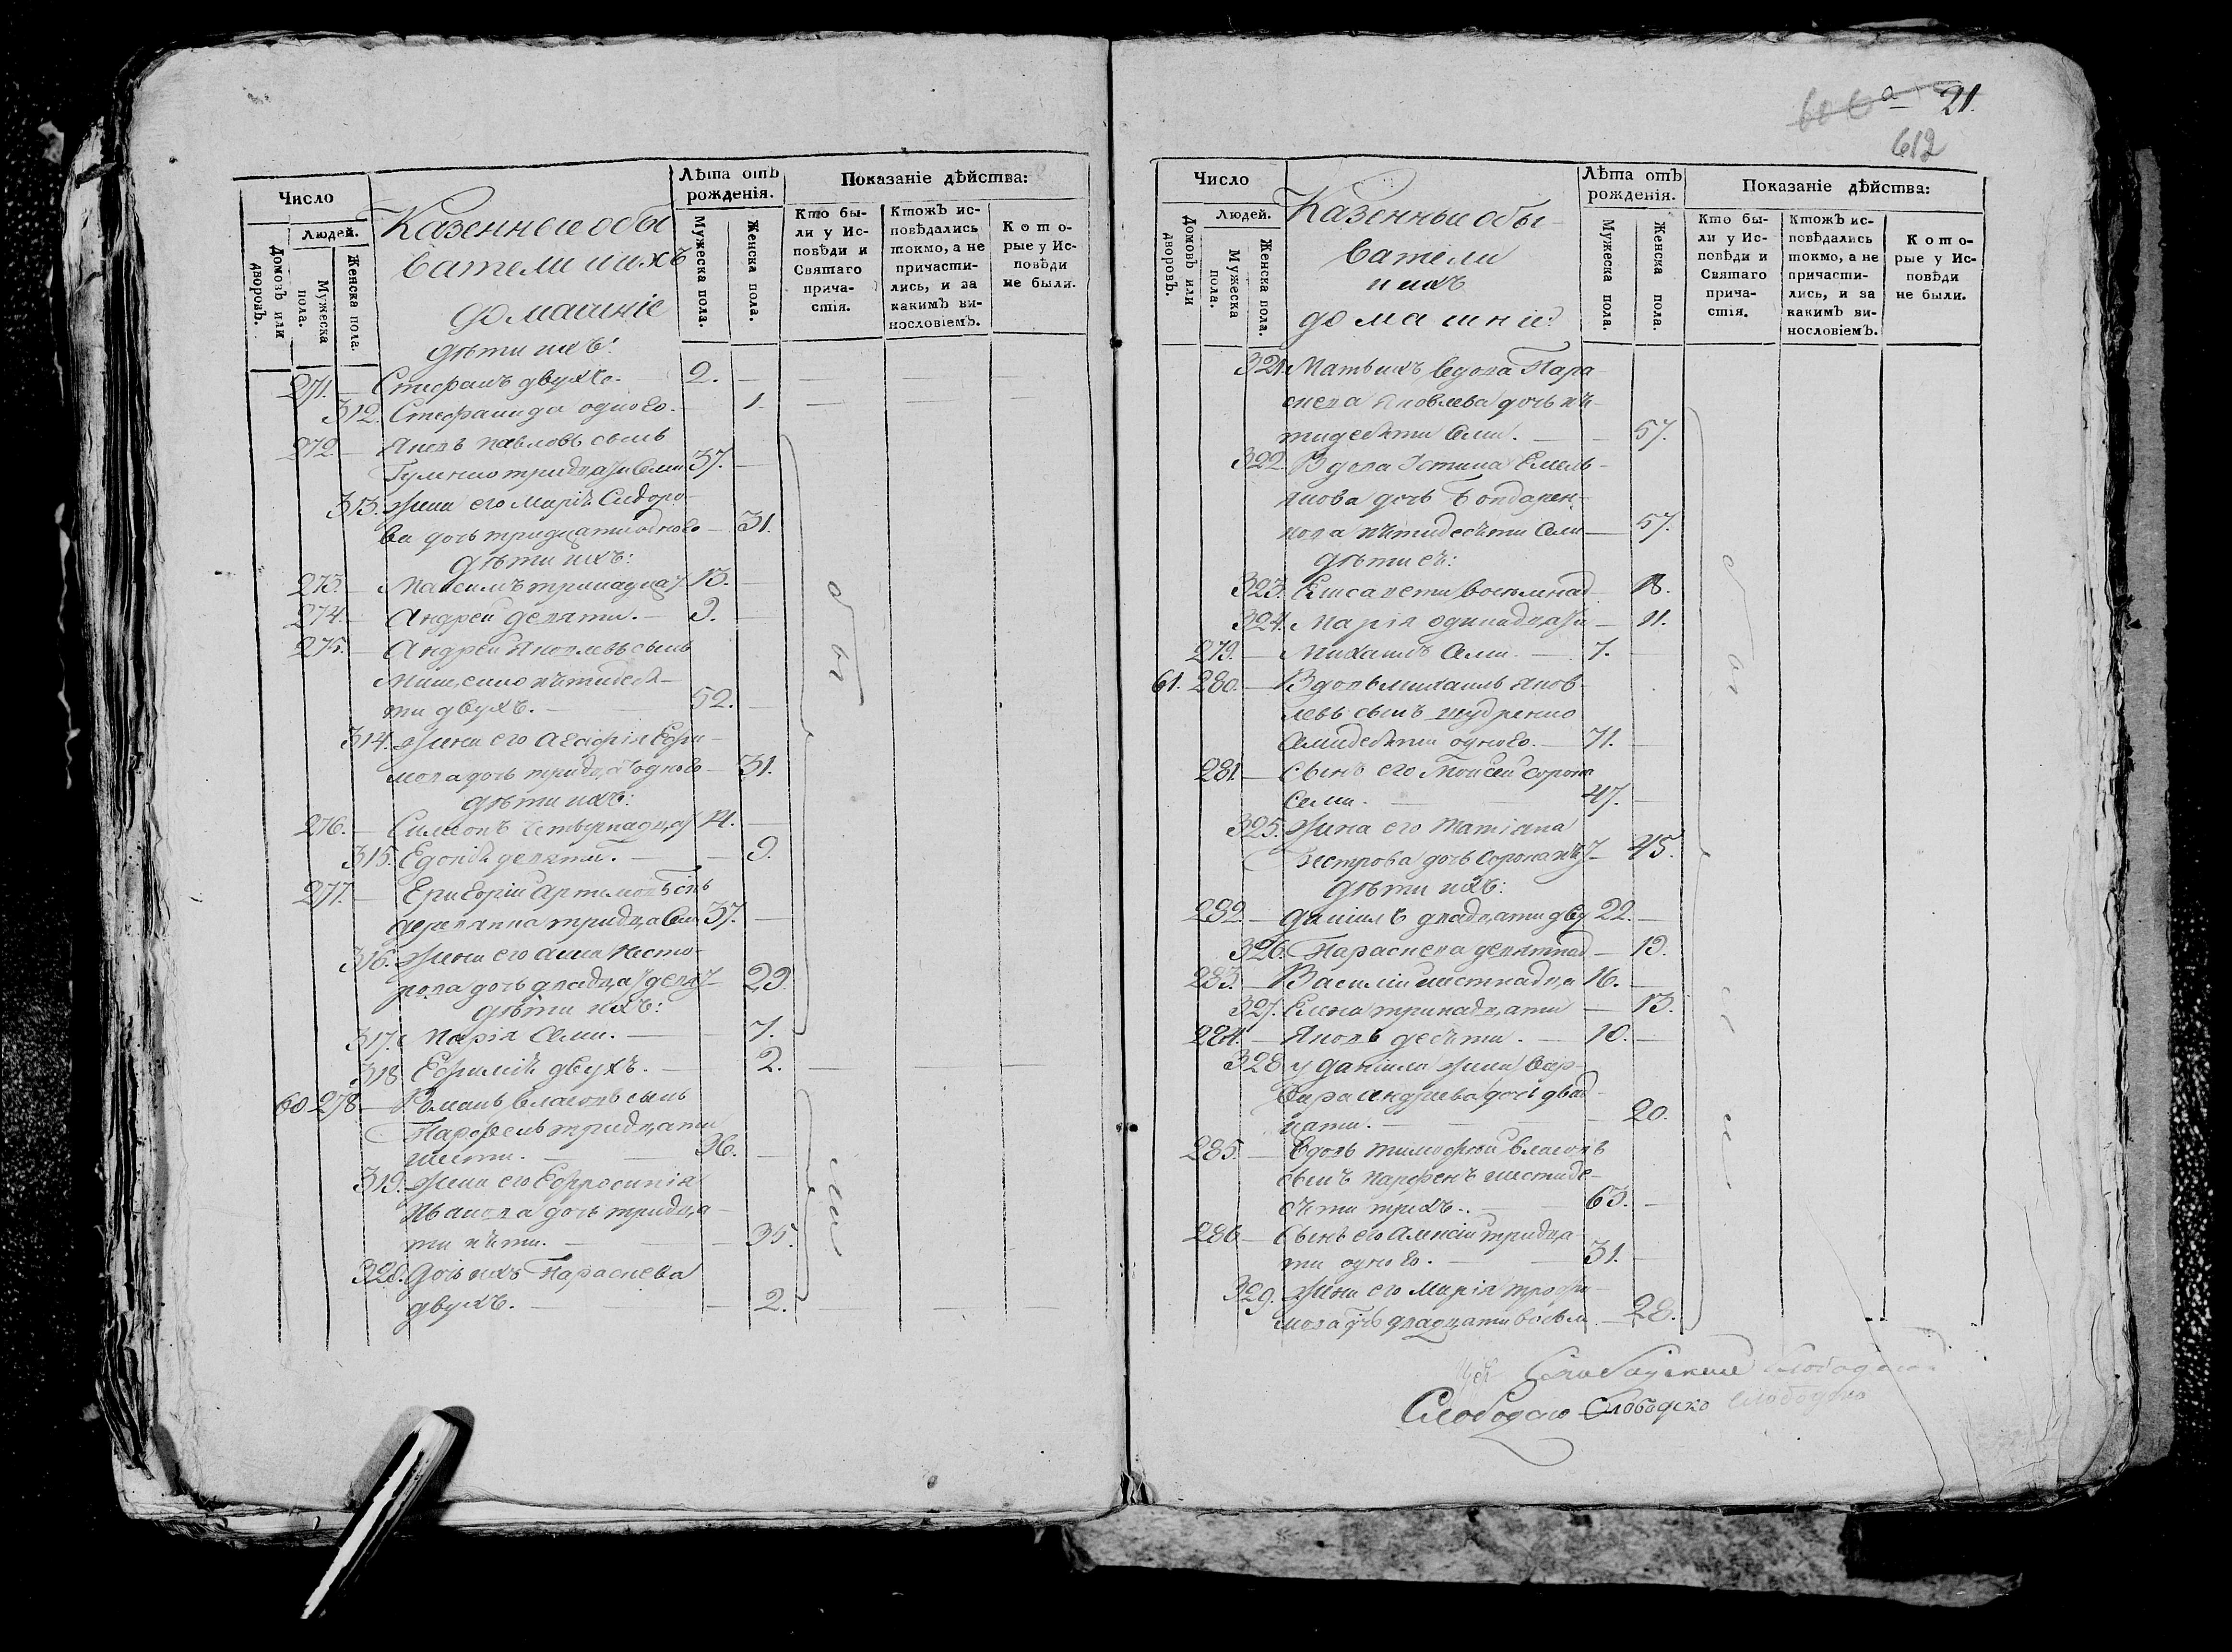 Число
Людей.
Домовъ или дворовъ.
Мужеска пола.
Женска пола.
Казенные обы
ватели и ихъ
домашніе
Лѣта отъ рожденія.
Мужеска пола.
Женска пола.
Показаніе дѣйства:
Кто бы-
ли у Ис-
повѣди и
Святаго
прича-
стія.
Ктожъ ис-
повѣдались
токмо, а не
причасти-
лись, и за
какимъ ви-
нословіемъ.
Кото-
рые у Ис-
повѣди
не были.
дѣти ихъ:
271. — Стефанъ двухъ. 2. —
312. Стефанида одного. 1.
272. — Яковъ Павловъ сынъ
тридцати семи 37. —
313. жена его Марія Сидоро-
ва дочь тридцати одного — 31.
дѣти ихъ:
273. — Максимъ тринадца 13. —
274. — Андрей девяти. — 9. —
275. — Андрей Яковлевъ сынъ
пятидеся-
ти двухъ. — 52. —
314. жена его Агафія Ефи-
мова дочь тридца одного — 31.
дѣти ихъ:
276. — Симеонъ четырнадца 14. —
315. Евдокія девяти. — 9.
277. — Григорій Артемовъ сынъ
тридца сем 37. —
316. жена его Анна Несто-
рова дочь двадца девя — 29.
дѣти ихъ:
317. Марія семи. — 7.
318. Ефимія двухъ. — 2.
60 278 — Романъ Власовъ сынъ
Парфенъ тридцати
шести. — 36. —
319. жена его Ефросинія
Иванова дочь тридца-
ти пяти. — 35.
320. Дочь ихъ Параскева
двухъ. — 2.
были
21.
612
Число
Людей.
Домовъ или дворовъ.
Мужеска пола.
Женска пола.
Казенные обы-
ватели
и ихъ
домашніе
Лѣта отъ рожденія.
Мужеска пола.
Женска пола.
Показаніе дѣйства:
Кто бы-
ли у Ис-
повѣди и
Святаго
прича-
стія.
Ктожъ ис-
повѣдались
токмо, а не
причасти-
лись, и за
какимъ ви-
нословіемъ.
Кото-
рые у Ис-
повѣди
не были.
321. Мать ихъ вдова Пара
скева Яковлева дочь пя-
тидесяти семи. — 57.
322. Вдова Устина Емель-
янова дочь Бондарен-
кова пятидесяти семи — 57.
дѣти ея:
323. Елисавета восемнад 18.
324. Марія одинадцати — 11.
279. — Михаилъ семи. — 7. —
61. 280. — Вдовъ Михаилъ Яков-
левъ сынъ
семидесяти одного. — 71. —
281. — Сынъ его Моисей сорока
семи. — 47. —
325. жена его Татіана
Нестрова дочь сорока пя — 45.
дѣти ихъ:
282. — Даніилъ двадцати дву 22. —
326. Параскева девятнад — 19.
283. — Василій шестнадца 16. —
327. Елена тринадцати — 13.
284. — Яковъ десяти. — 10. —
328. у Даніила жена Вар-
вара Андреева дочь двад-
цати. — 20.
285. — Вдовъ Тимофей Власовъ
сынъ Парфенъ шестиде-
сяти трихъ. — 63. —
286 — Сынъ его Алексій тридца
ти одного. — 31. —
329. жена его Марія Трофи-
мова дчь двадцати восьм — 28.
были
Слободско Слободско Слободско